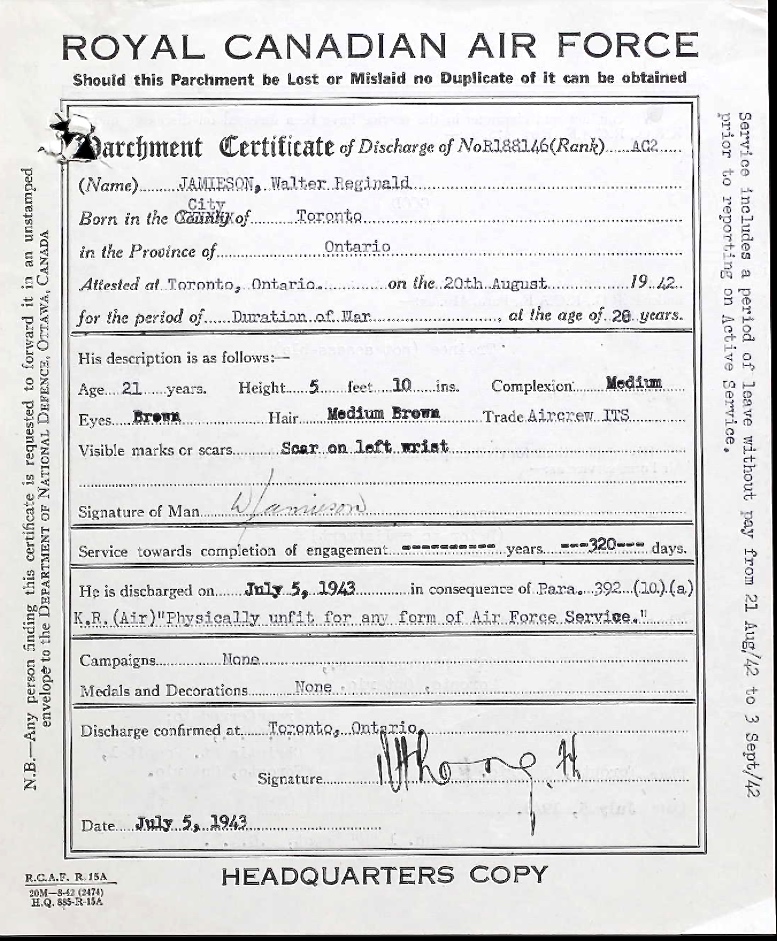 ROYAL CANADIAN AIR FORCE
Should this Parchment be Lost or Mislaid no Duplicate of it can be obtained
Parchment Certificate of Discharge of No R188146 (Rank) AC2
(Name) JAMIESON, Walter Reginald
City
Born in the County of Toronto
in the Province of Ontario
Attested at Toronto, Ontario. on the 20th August 19 42.
for the period of Duration of War, at the age of 20 years.
His description is as follows:—
Age 21 years. Height 5 feet 10 ins. Complexion Medium
Eyes Brown Hair Medium Brown Trade Aircrew ITS
Visible marks or scars Scar on left wrist
Signature of Man W Jamieson
Service towards completion of engagement ---------- years ---320--- days.
He is discharged on July 5, 1943 in consequence of Para. 392 (10)(a)
K.R.(Air)"Physically unfit for any form of Air Force Service."
Campaigns None
Medals and Decorations None
Discharge confirmed at Toronto, Ontario
Signature
Date July 5, 1943
R.C.A.F. R. 15A
20M—8-42 (2474)
H.Q. 885-R-15A
HEADQUARTERS COPY
N.B.—Any person finding this certificate is requested to forward it in an unstamped
envelope to the DEPARTMENT OF NATIONAL DEFENCE, OTTAWA, CANADA
Service includes a period of leave without pay from 21 Aug/42 to 3 Sept/42
prior to reporting on Active Service.